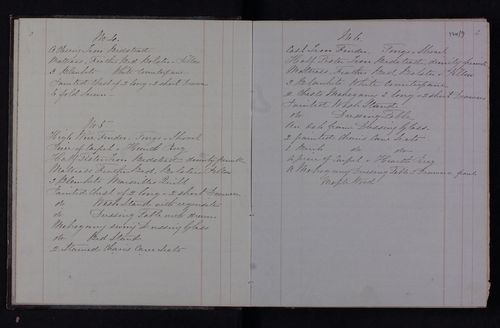 No 4.
Mattress, Feather Bed Bolster & Pillow
3 Blankets White Counterpane
Painted Chest of 2 long & 2 short Drawers
No 5
High Wire Fender, Tongs & Shovel
Piece of Carpet & Hearth Rug
Half Tester Iron Bedstead & dimity
Mattress Feather Bed, Bolster & Pillow
2 Blankets Marseilles Quilt
Painted Chest of 2 long & 2 short Drawers
do Wash Stand with requisites
do Dressing Table with drawer
Mahogany swing Dressing Glass
do Bed Stand
2 Stained Chairs Cane Seats
No 6
Cast Iron Fender Tongs & Shovel
Half Tester Iron Bedstead, dimity
Mattress Feather Bed Bolster & Pillow
3 Blankets White Counterpane
Chest Mahogany 2 long & 2 short Drawers
Painted Wash Stand
do Dressing Table
An ash frame Dressing Glass
2 painted Chairs cane seats
do do
A piece of Carpet & Hearth Rug
A Mahogany Dressing Table